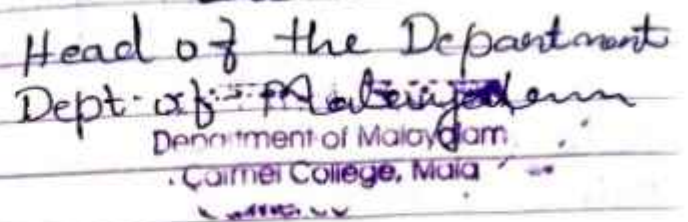 Head of the Department
Dept. of Malayalam
Department of Malayalam
Carmel College, Mala